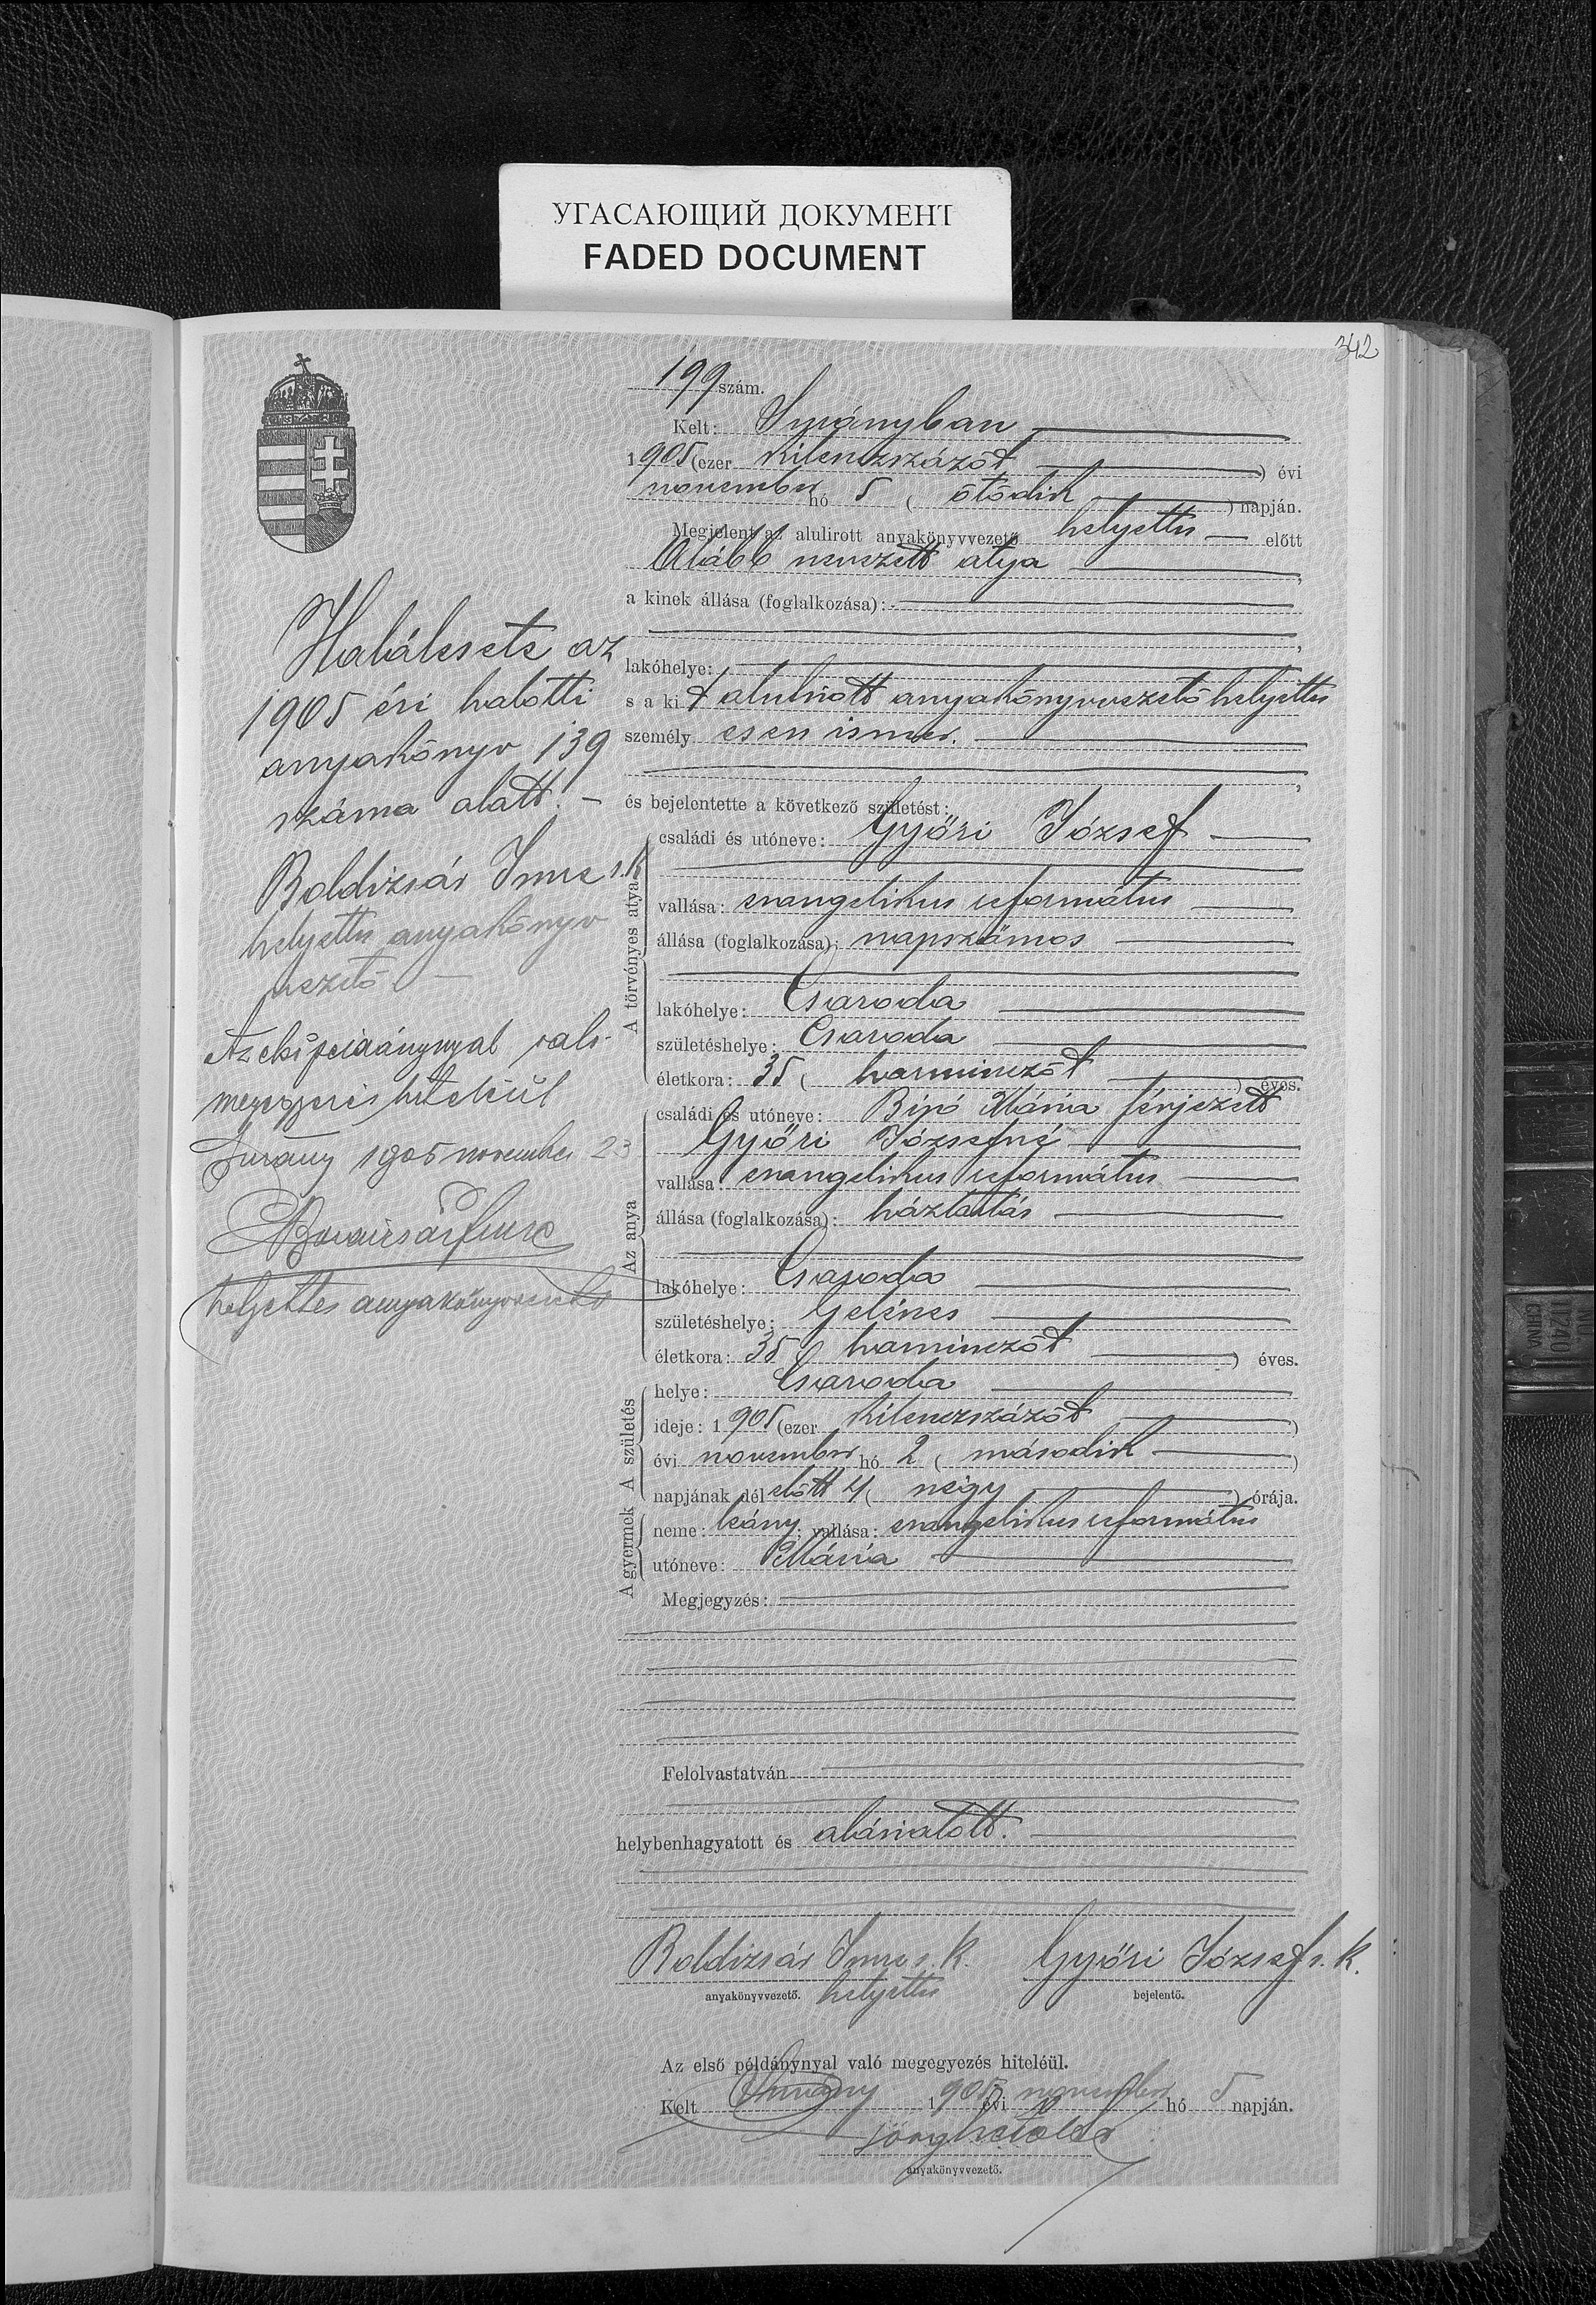 УГАСАЮЩИЙ ДОКУМЕНТ
FADED DOCUMENT
342
199 szám.
Kelt: Surányban
1905 (ezer kilenczszázöt ) évi
november hó 5 ( ötödik ) napján.
Megjelent az alulirott anyakönyvvezető helyettes előtt
Alább nevezett atya ,
a kinek állása (foglalkozása):
,
lakóhelye:
s a kit alulirott anyakönyvvezető helyettes
személyesen ismer.
,
és bejelentette a következő születést:
A törvényes atya
családi és utóneve: Győri József
vallása: evangelikus református
állása (foglalkozása): napszámos
lakóhelye: Csaroda
születéshelye: Csaroda
életkora: 35 ( harminczöt ) éves.
Az anya
családi és utóneve: Bipó Mária férjezett
Győri Józsefné
vallása: evangelikus református
állása (foglalkozása): háztartás
lakóhelye: Csaroda
születéshelye: Gelénes
életkora: 35 ( harminczöt ) éves.
A születés
helye: Csaroda
ideje: 1905 (ezer kilenczszázöt )
évi november hó 2 ( második )
napjának dél előtt 4 ( négy ) órája.
A gyermek
neme: leány; vallása: evangelikus református
utóneve: Mária
Megjegyzés:
Felolvastatván
helybenhagyatott és aláiratott.
Boldizsár Imre s. k. Győri József s. k.
anyakönyvvezető. helyettes bejelentő.
Az első példánynyal való megegyezés hiteléül.
Kelt Surány 1905 évi november hó 5 napján.
anyakönyvvezető.
Halálesete az
1905 évi halotti
anyakönyv 139
száma alatt! –
Boldizsár Imre s. k.
helyettes anyakönyv
vezető –
Az első példánynyal való
megegyezés hiteléül
Surány 1905 november 23
Boldizsár Imre
helyettes anyakönyvvezető